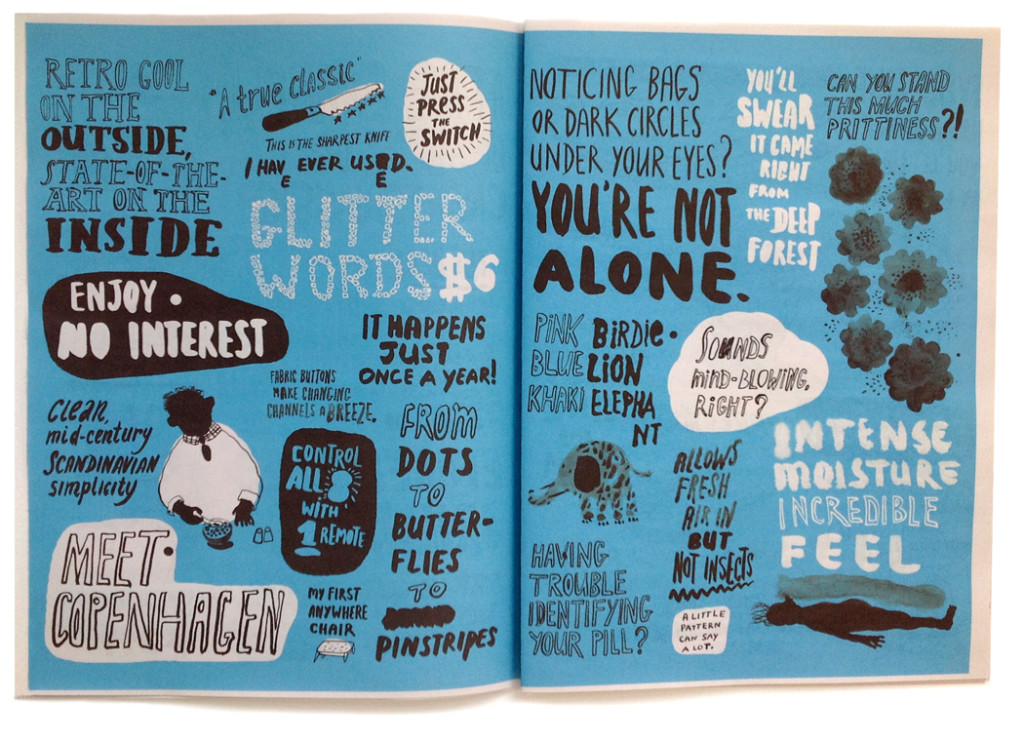 RETRO COOL
ON THE
OUTSIDE,
STATE-OF-THE-
ART ON THE
INSIDE
"A true classic"
THIS IS THE SHARPEST KNIFE
I HAVE EVER USED.
JUST
PRESS
THE
SWITCH
GLITTER
WORDS $6
ENJOY
NO INTEREST
IT HAPPENS
JUST
ONCE A YEAR!
FABRIC BUTTONS
MAKE CHANGING
CHANNELS A BREEZE.
Clean,
mid-century
SCANDINAVIAN
simplicity
CONTROL
ALL 8
WITH
1 REMOTE
FROM
DOTS
TO
BUTTER-
FLIES
TO
PINSTRIPES
MEET
COPENHAGEN
MY FIRST
ANYWHERE
CHAIR
NOTICING BAGS
OR DARK CIRCLES
UNDER YOUR EYES?
YOU'RE NOT
ALONE.
YOU'LL
SWEAR
IT CAME
RIGHT
FROM
THE DEEP
FOREST
CAN YOU STAND
THIS MUCH
PRITTINESS?!
PINK BIRDIE
BLUE LION
KHAKI ELEPHA
NT
SOUNDS
MIND-BLOWING,
RIGHT?
ALLOWS
FRESH
AIR IN
BUT
NOT INSECTS
INTENSE
MOISTURE
INCREDIBLE
FEEL
HAVING
TROUBLE
IDENTIFYING
YOUR PILL?
A LITTLE
PATTERN
CAN SAY
A LOT.